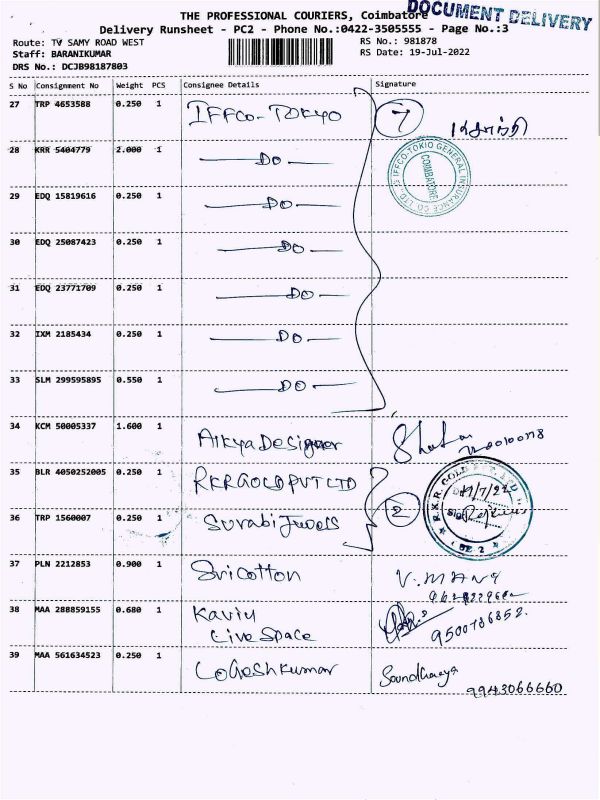 DOCUMENT DELIVERY
THE PROFESSIONAL COURIERS, Coimbatore
Delivery Runsheet - PC2 - Phone No.:0422-3505555 - Page No.:3
Route: TV SAMY ROAD WEST
RS No.: 981878
Staff: BARANIKUMAR
RS Date: 19-Jul-2022
DRS No.: DCJB98187803
S No Consignment No Weight PCS Consignee Details Signature
27 TRP 4653588 0.250 1 IFFCO-TOKYO 7
IFFCO-TOKIO GENERAL INSURANCE CO. LTD.
COIMBATORE
28 KRR 5404779 2.000 1 DO
29 EDQ 15819616 0.250 1 DO
30 EDQ 25087423 0.250 1 DO
31 EDQ 23771709 0.250 1 DO
32 IXM 2185434 0.250 1 DO
33 SLM 299595895 0.550 1 DO
34 KCM 50005337 1.600 1 Aikya Designer
35 BLR 4050252005 0.250 1 RKR GOLD PVT LTD
36 TRP 1560007 0.250 1 Surabi Jewels 2
37 PLN 2212853 0.900 1 Sricotton V. MANI
38 MAA 288859155 0.680 1 Kaviy
Live Space 9500786852.
39 MAA 561634523 0.250 1 Logeshkumar Soundharya
9943066660